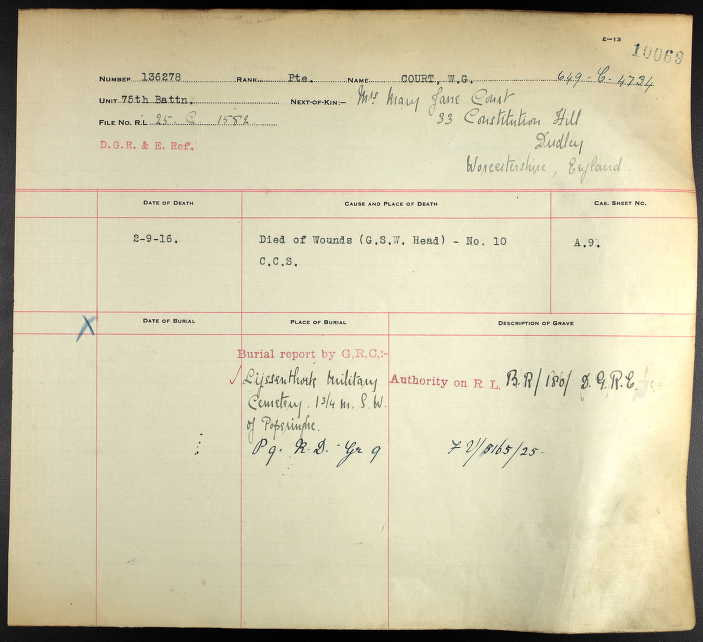 E-13
10063
Number 136278 Rank Pte. Name COURT, W.G. 649-C-4734
Unit 75th Battn. Next-of-Kin:- Mrs Mary Jane Court
File No. R.L 25 C 1552 33 Constitution Hill
D.G.R. & E. Ref. Dudley
Worcestershire, England
Date of Death Cause and Place of Death Cas. Sheet No.
2-9-16. Died of Wounds (G.S.W. Head) - No. 10 A.9.
C.C.S.
Date of Burial Place of Burial Description of Grave
Burial report by G.R.C.:-
Lijssenthoek Military Authority on R L. B.R/180/ D.G.R.E.
Cemetery. 1 3/4 m. S.W.
of Poperinghe.
P 9. R. D. Gr 9 /5165/25-